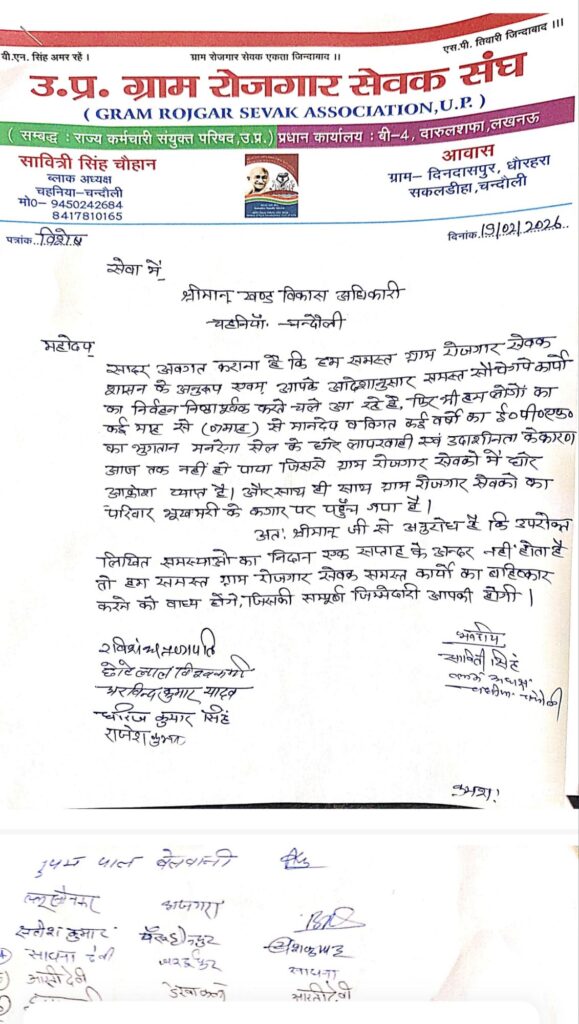 वी.एन. सिंह अमर रहें ।
ग्राम रोजगार सेवक एकता जिन्दाबाद ।।
एस.पी. तिवारी जिन्दाबाद ।।।
उ.प्र. ग्राम रोजगार सेवक संघ
( GRAM ROJGAR SEVAK ASSOCIATION,U.P. )
( सम्बद्ध : राज्य कर्मचारी संयुक्त परिषद,उ.प्र.) प्रधान कार्यालय : बी-4, दारुलशफा,लखनऊ
सावित्री सिंह चौहान
ब्लाक अध्यक्ष
चहनिया-चन्दौली
मो0- 9450242684
8417810165
आवास
ग्राम- दिनदासपुर, धौरहरा
सकलडीहा,चन्दौली
पत्रांक..विशेष
दिनांक.19/02/2026..
सेवा में,
श्रीमान् खण्ड विकास अधिकारी
चहनियाँ- चन्दौली
महोदय,
सादर अवगत कराना है कि हम समस्त ग्राम रोजगार सेवक
शासन के अनुरूप एवम् आपके आदेशानुसार समस्त सौंपे गये कार्यो
का निर्वहन निष्ठापूर्वक करते चले आ रहे है, फिर भी हम लोगों का
कई माह से माह) से मानदेय व विगत कई वर्षो का ई०पी०एफ०
का भुगतान मनरेगा सेल के घोर लापरवाही एवं उदाशीनता के कारण
आज तक नहीं हो पाया जिससे ग्राम रोजगार सेवको में घोर
आक्रोश व्याप्त है। और साथ ही साथ ग्राम रोजगार सेवको का
परिवार भूखमरी के कगार पर पहुँच गया है।
अतः श्रीमान् जी से अनुरोध है कि उपरोक्त
लिखित समस्याओ का निदान एक सप्ताह के अन्दर नहीं होता है
तो हम समस्त ग्राम रोजगार सेवक समस्त कार्यो का बहिष्कार
करने को बाध्य होंगे, जिसकी सम्पूर्ण जिम्मेदारी आपकी होगी।
भवदीय
सावित्री सिंह
छोटे लाल विश्वकर्मा
अरविन्द कुमार यादव
धीरज कुमार सिंह
राजेश कुमार
क्रमश:
सतेश कुमार
साधना देवी
साधना
आरती देवी
आरती देवी